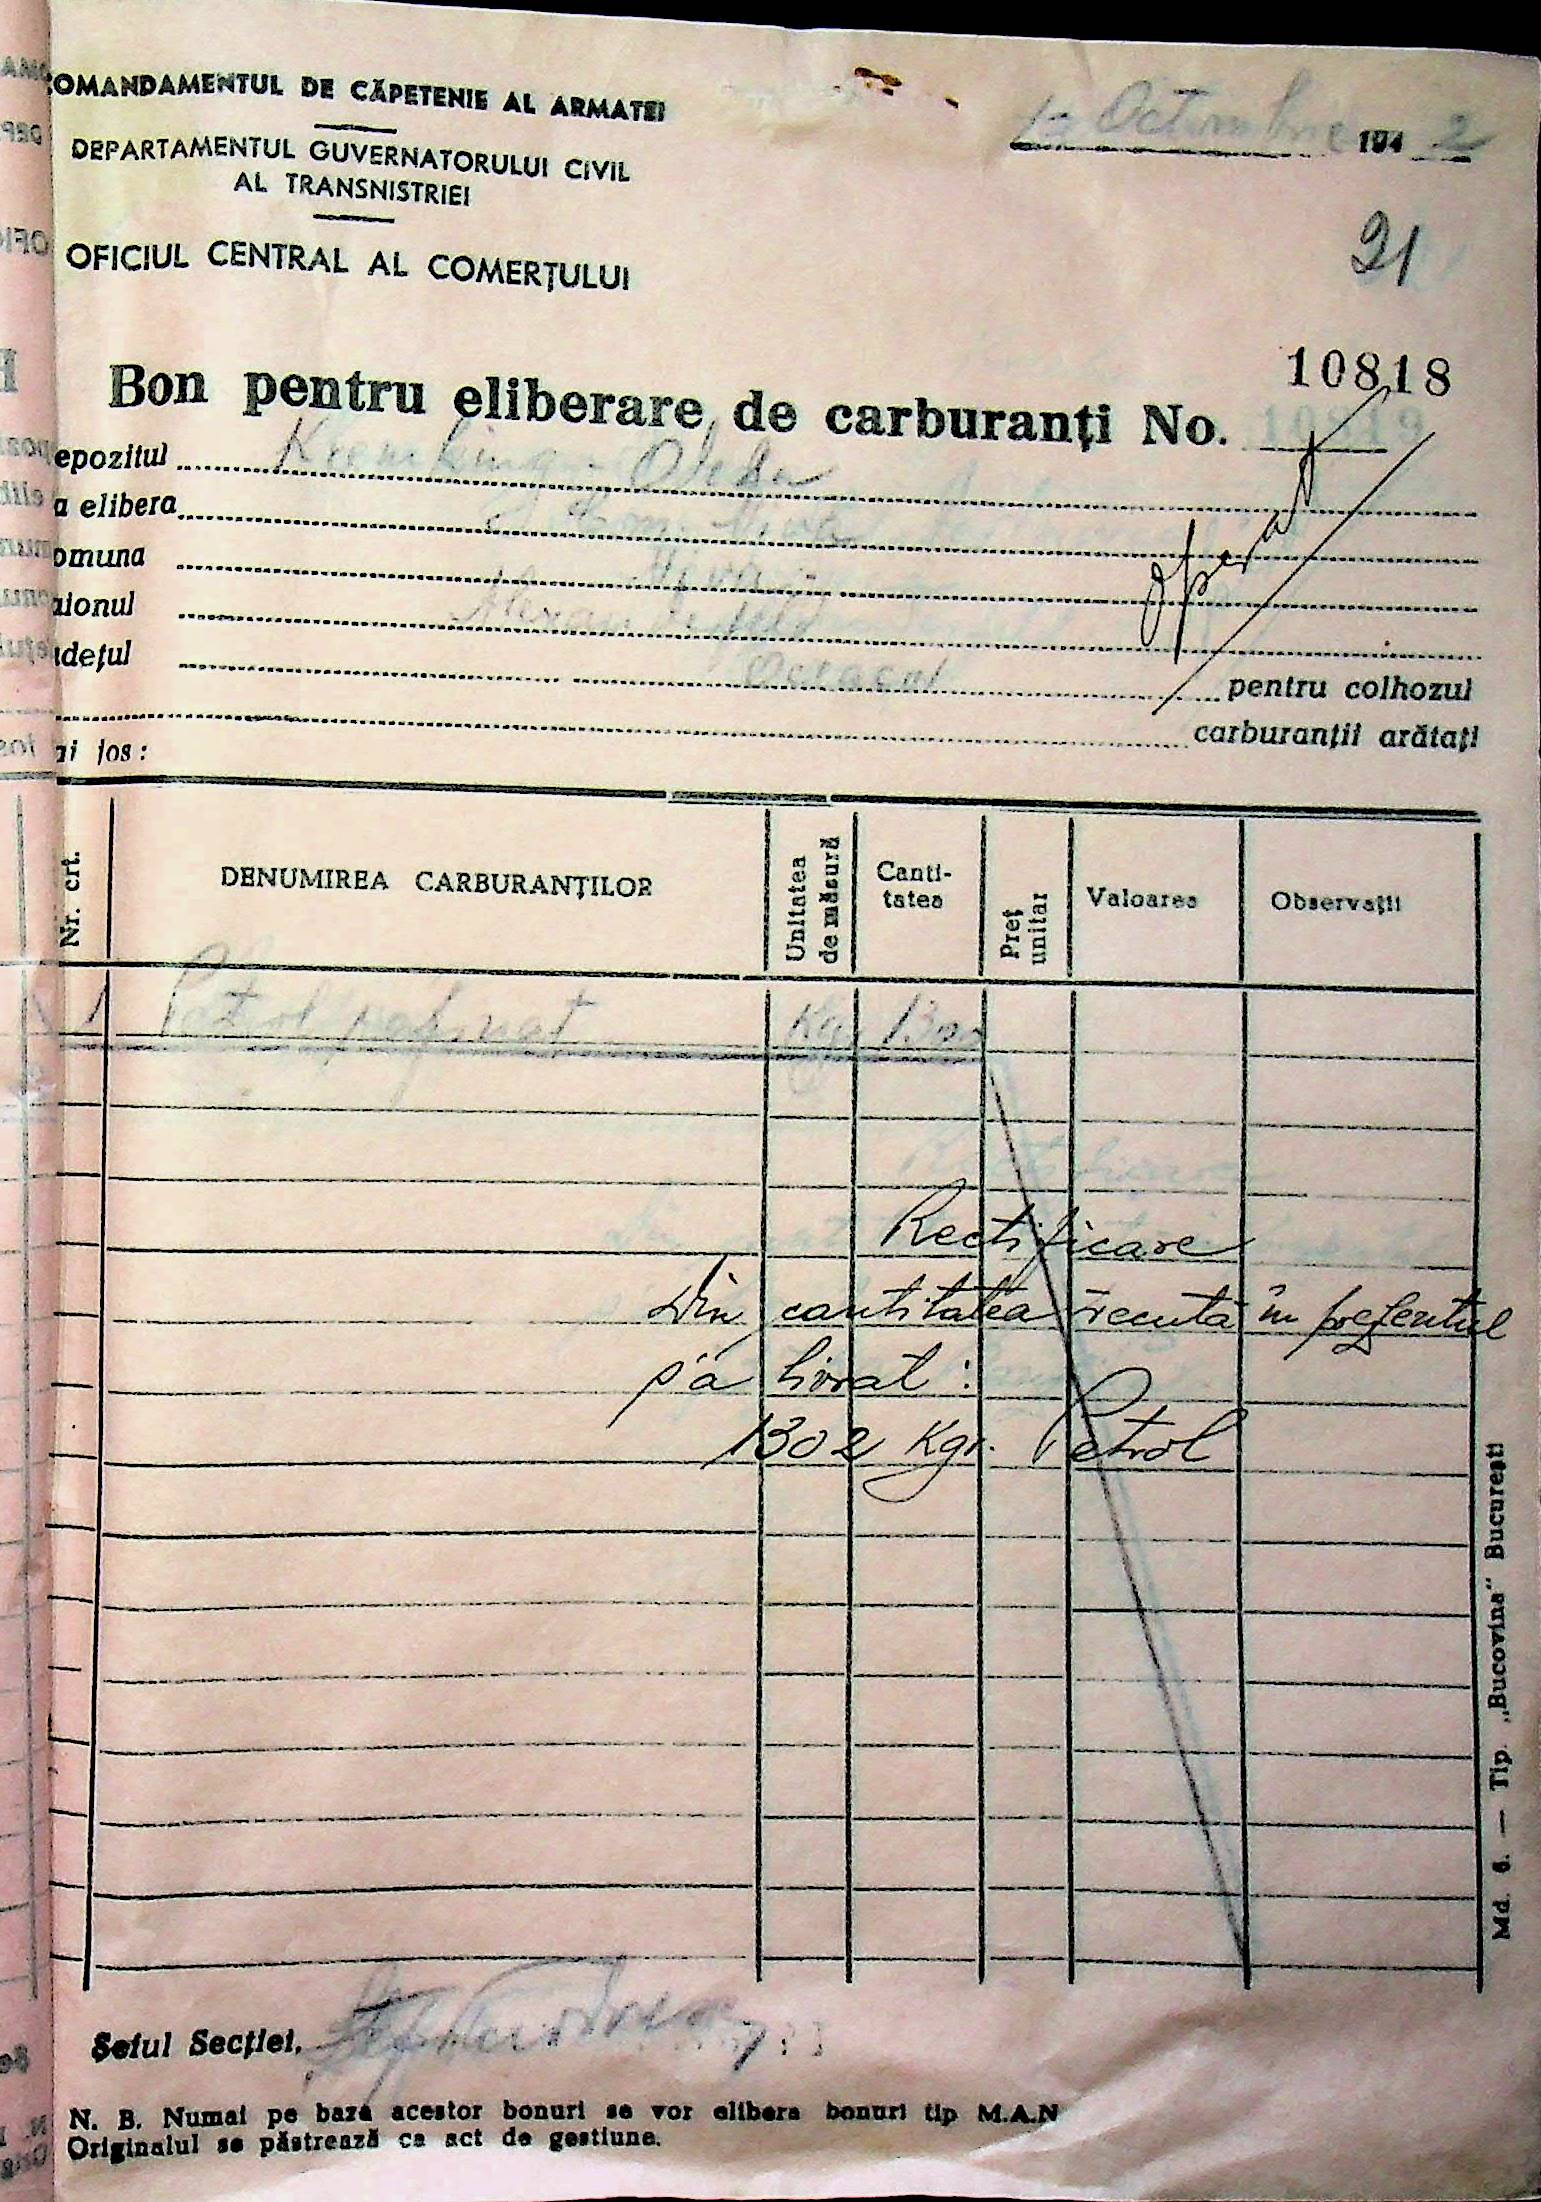 COMANDAMENTUL DE CĂPETENIE AL ARMATEI
DEPARTAMENTUL GUVERNATORULUI CIVIL
AL TRANSNISTRIEI
OFICIUL CENTRAL AL COMERȚULUI
Octombrie 1942
21
10818
Bon pentru eliberare de carburanți No. 10819
epozitul
a elibera
omuna
aionul
udețul pentru colhozul
carburanții arătați
ai jos:
operat
Nr. crt. DENUMIREA CARBURANȚILOR Unitatea de măsură Cantitatea Preț unitar Valoarea Observații
1 Petrol rafinat Kgr 1300
Rectificare
Din cantitatea trecută în prezentul
s'a livrat :
1302 Kgr. Petrol
Șeful Secției,
N. B. Numai pe baza acestor bonuri se vor elibera bonuri tip M.A.N
Originalul se păstrează ca act de gestiune.
Md. 6. — Tip. „Bucovina" București